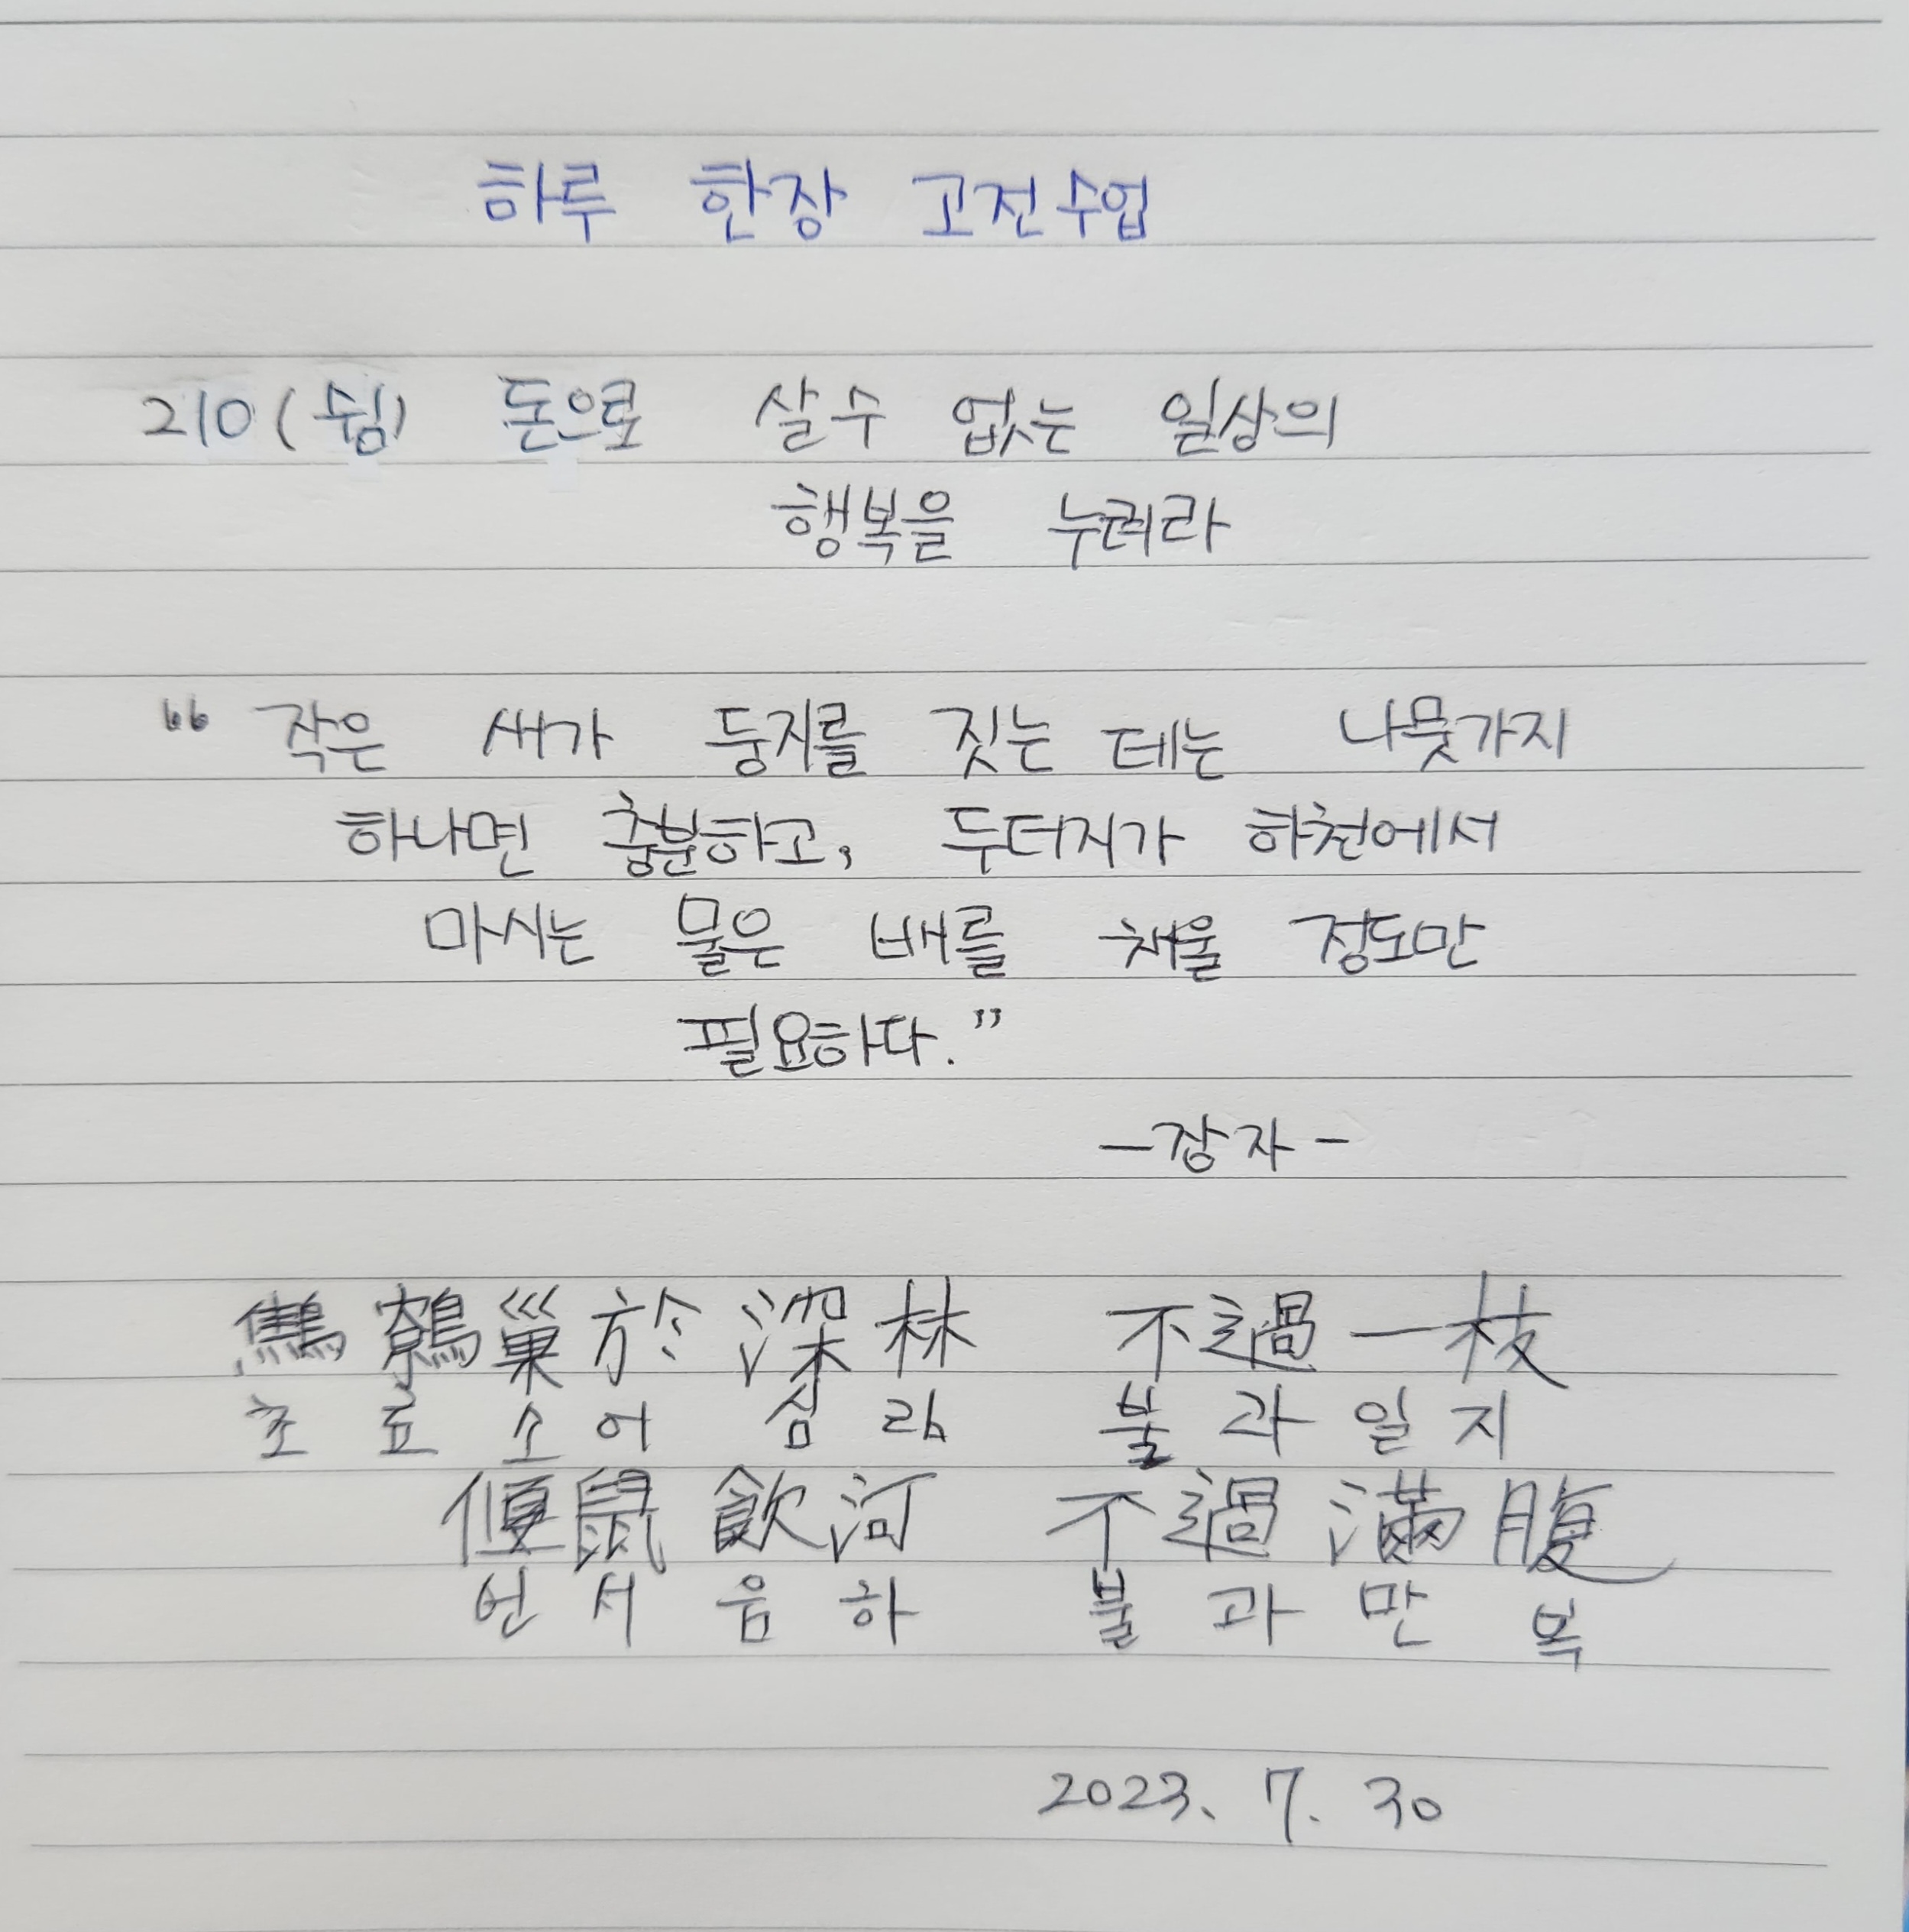 하루 한장 고전수업
210(쉼) 돈으로 살수 없는 일상의
행복을 누려라
"작은 새가 둥지를 짓는 데는 나뭇가지
하나면 충분하고, 두더지가 하천에서
마시는 물은 배를 채울 정도만
필요하다."
-장자-
鷦鷯巢於深林 不過一枝
초료소어 심림 불과일지
偃鼠飮河 不過滿腹
언서음하 불과만복
2023. 7. 30